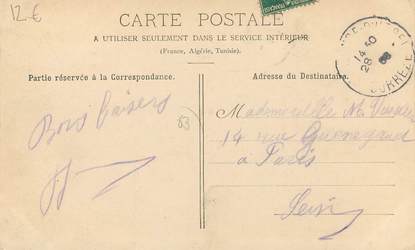 12.€
CARTE POSTALE
A UTILISER SEULEMENT DANS LE SERVICE INTÉRIEUR
(France, Algérie, Tunisie).
Partie réservée à la Correspondance.
Adresse du Destinataire.
Bons baisers
83
Mademoiselle M.
14 rue Guénégaud
à Paris
Seine
14 40
28
08
CORRÈZE